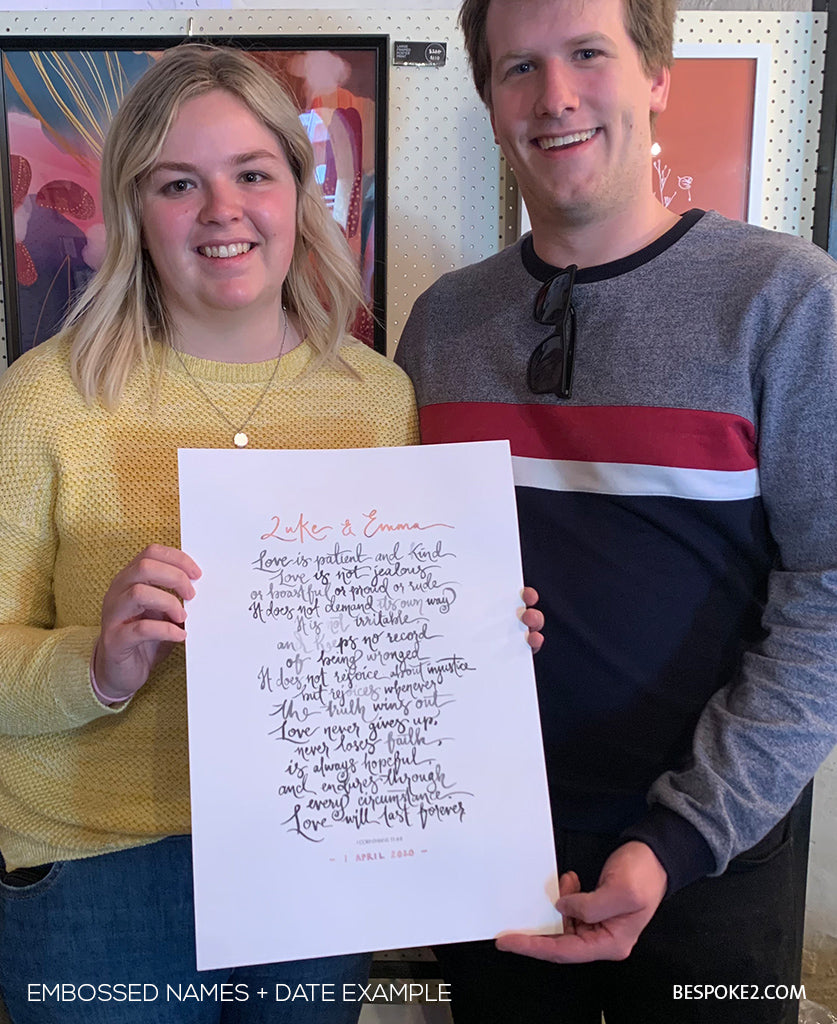 LARGE
FRAMED
POSTER
PRINT
$320
Luke & Emma
Love is patient and kind
Love is not jealous
or boastful or proud or rude
It does not demand its own way
It is not irritable
and keeps no record
of being wronged
It does not rejoice about injustice
but rejoices whenever
the truth wins out
Love never gives up,
never loses faith,
is always hopeful,
and endures through
every circumstance
Love will last forever
1 CORINTHIANS 13:4-8
- 1 APRIL 2020 -
EMBOSSED NAMES + DATE EXAMPLE
BESPOKE2.COM